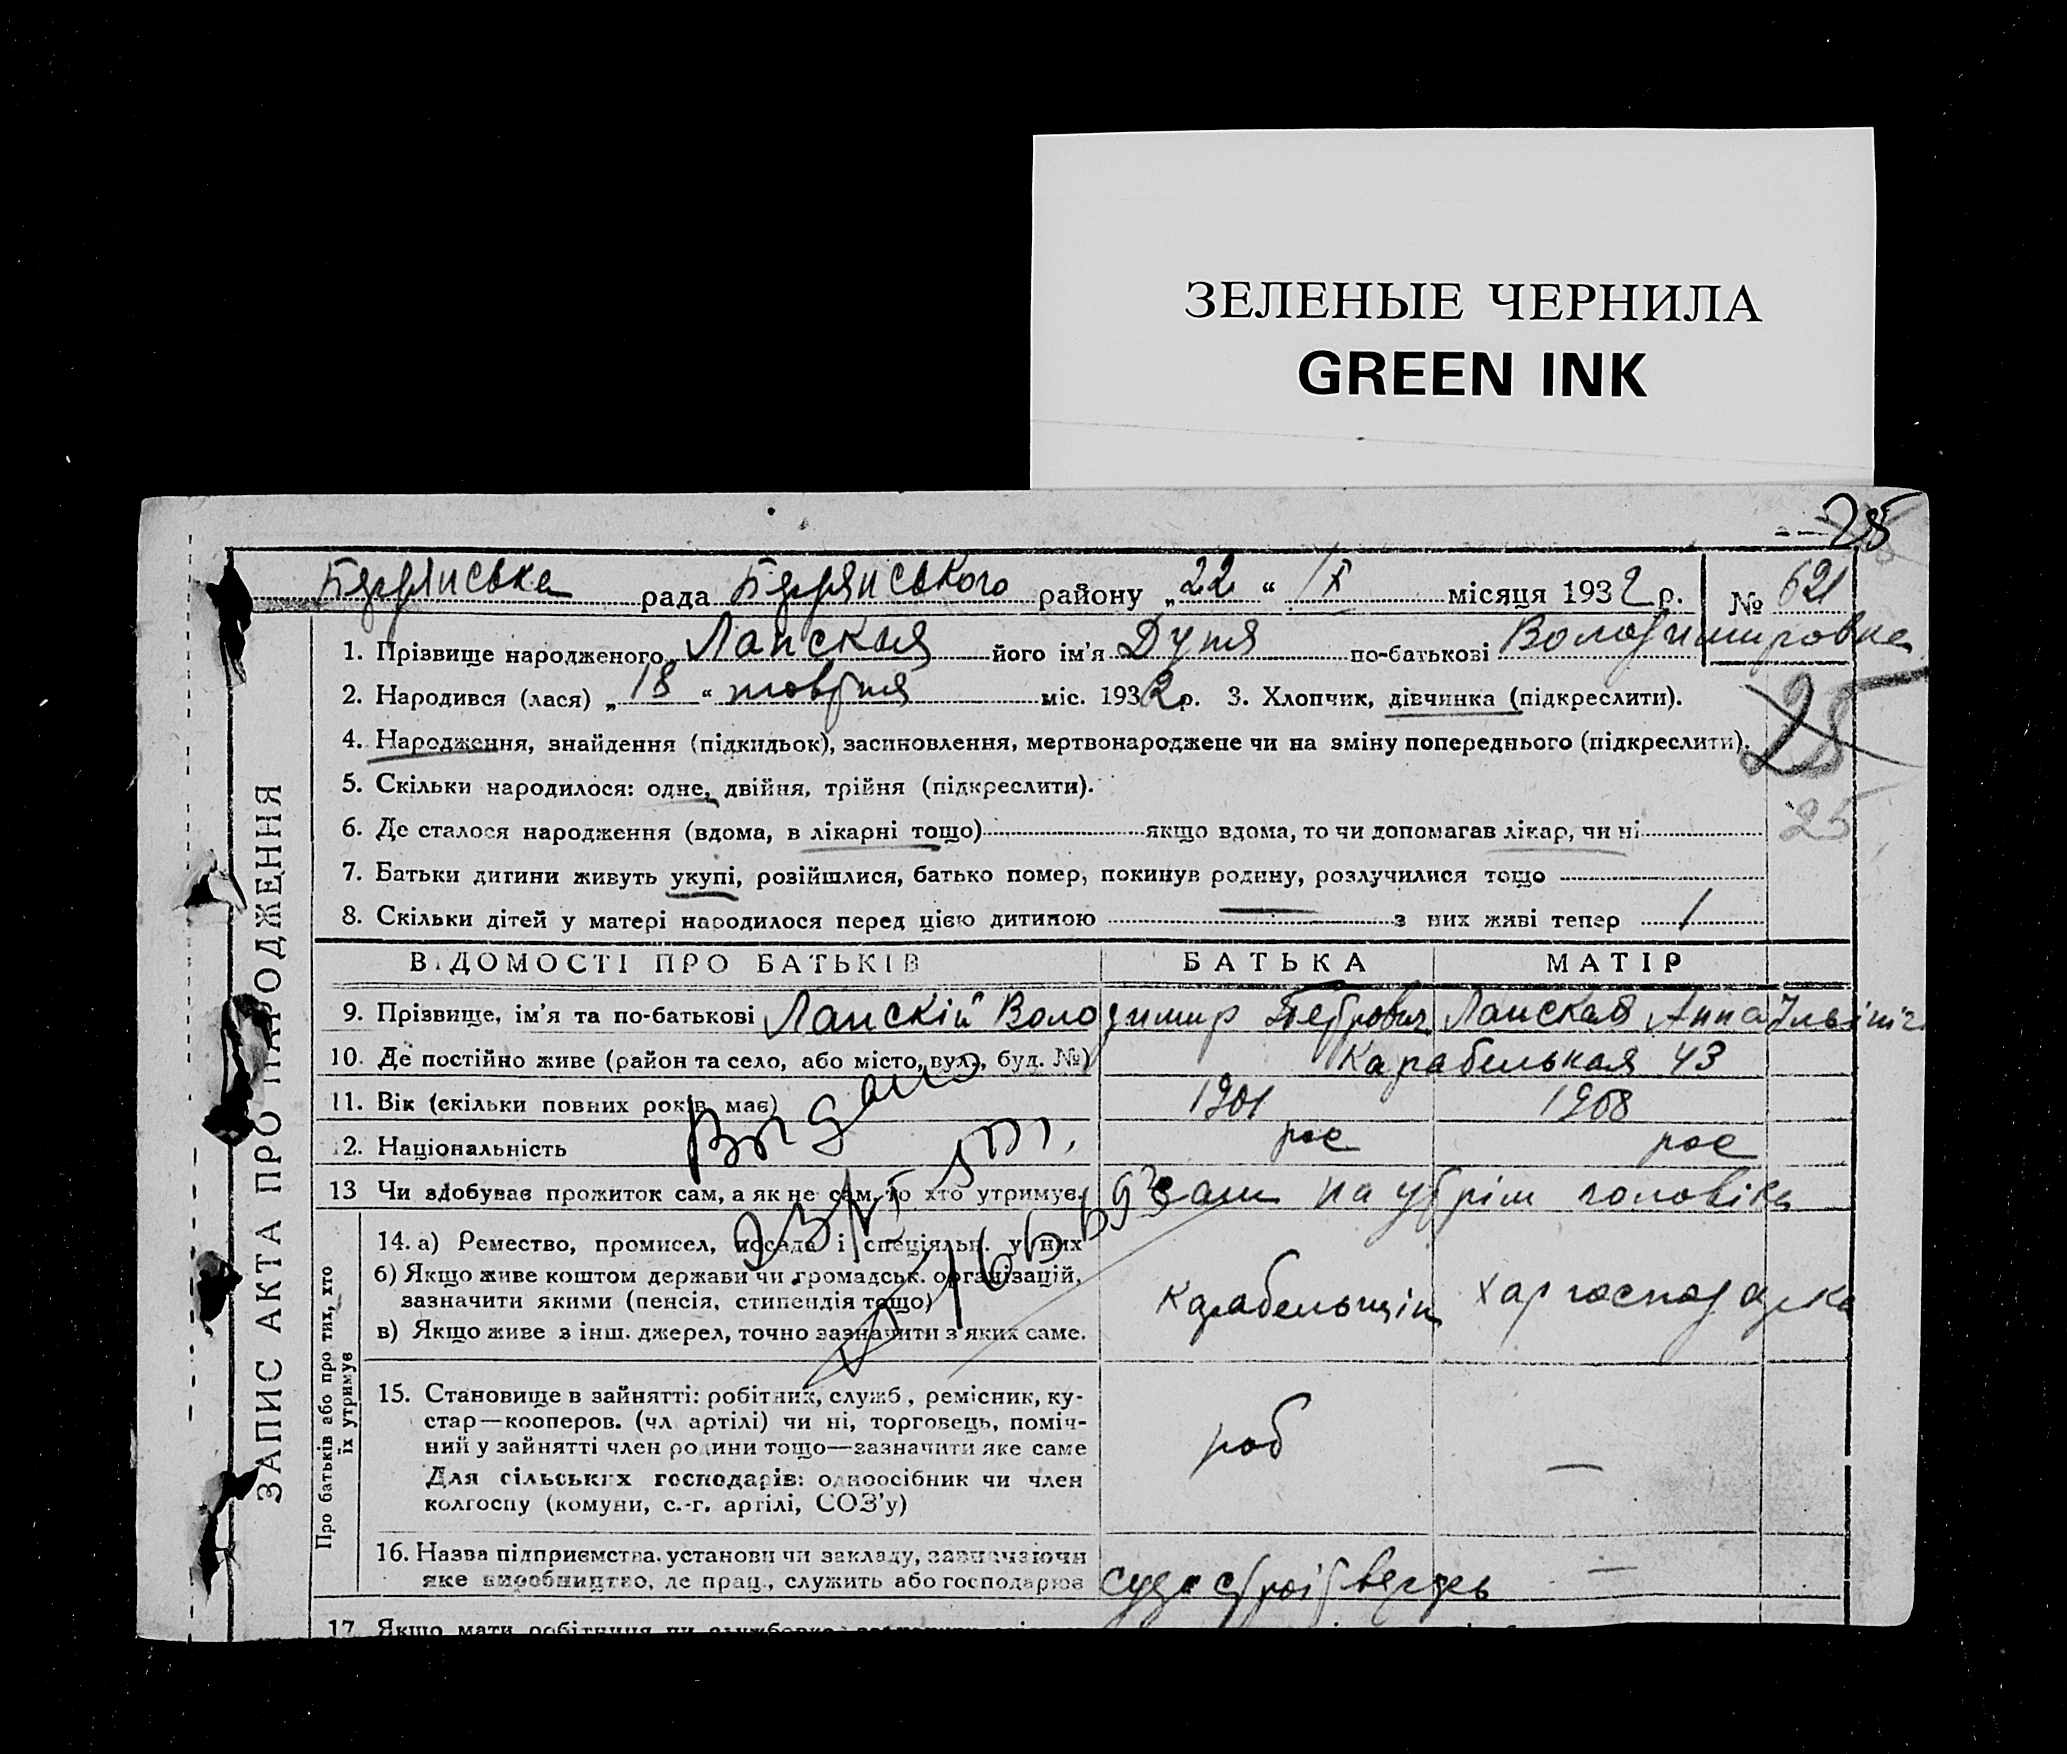 ЗЕЛЕНЫЕ ЧЕРНИЛА
GREEN INK
28
Бердянська рада Бердянського району „22“ IX місяця 1932 р. № 621
1. Прізвище народженого Лапская його ім'я Дуня по-батькові Володимировна
2. Народився (лася) „18“ жовтня міс. 1932 р. 3. Хлопчик, дівчинка (підкреслити).
4. Народження, знайдення (підкидьок), засиновлення, мертвонароджене чи на зміну попереднього (підкреслити).
28
5. Скільки народилося: одне, двійня, трійня (підкреслити).
6. Де сталося народження (вдома, в лікарні тощо) якщо вдома, то чи допомагав лікар, чи ні
25
7. Батьки дитини живуть укупі, розійшлися, батько помер, покинув родину, розлучилися тощо
8. Скільки дітей у матері народилося перед цією дитиною — з них живі тепер 1
ВІДОМОСТІ ПРО БАТЬКІВ БАТЬКА МАТІР
9. Прізвище, ім'я та по-батькові Лапскій Володимир Петрович Лапская Анна
10. Де постійно живе (район та село, або місто, вул., буд. №) Карабельная 43
11. Вік (скільки повних років має) 1901 1908
12. Національність рос рос
13 Чи здобуває прожиток сам, а як не сам, то хто утримує сам на утрім чоловіка
14. а) Ремество, промисел, посада і спеціяльн. у них
б) Якщо живе коштом держави чи громадськ. організацій,
зазначити якими (пенсія, стипендія тощо)
в) Якщо живе з інш. джерел, точно зазначити з яких саме.
Карабельщік хатгосподарка
15. Становище в зайнятті: робітник, служб., ремісник, ку-
стар—кооперов. (чл. артілі) чи ні, торговець, поміч-
ний у зайнятті член родини тощо—зазначити яке саме
Для сільських господарів: одноосібник чи член
колгоспу (комуни, с.-г. артілі, СОЗ'у)
роб —
16. Назва підприємства, установи чи закладу, зазначаючи
яке виробництво, де прац., служить або господарює
—
17 Якщо мати робітниця чи службовка
ЗАПИС АКТА ПРО НАРОДЖЕННЯ
Про батьків або про тих, хто
їх утримує
Видано